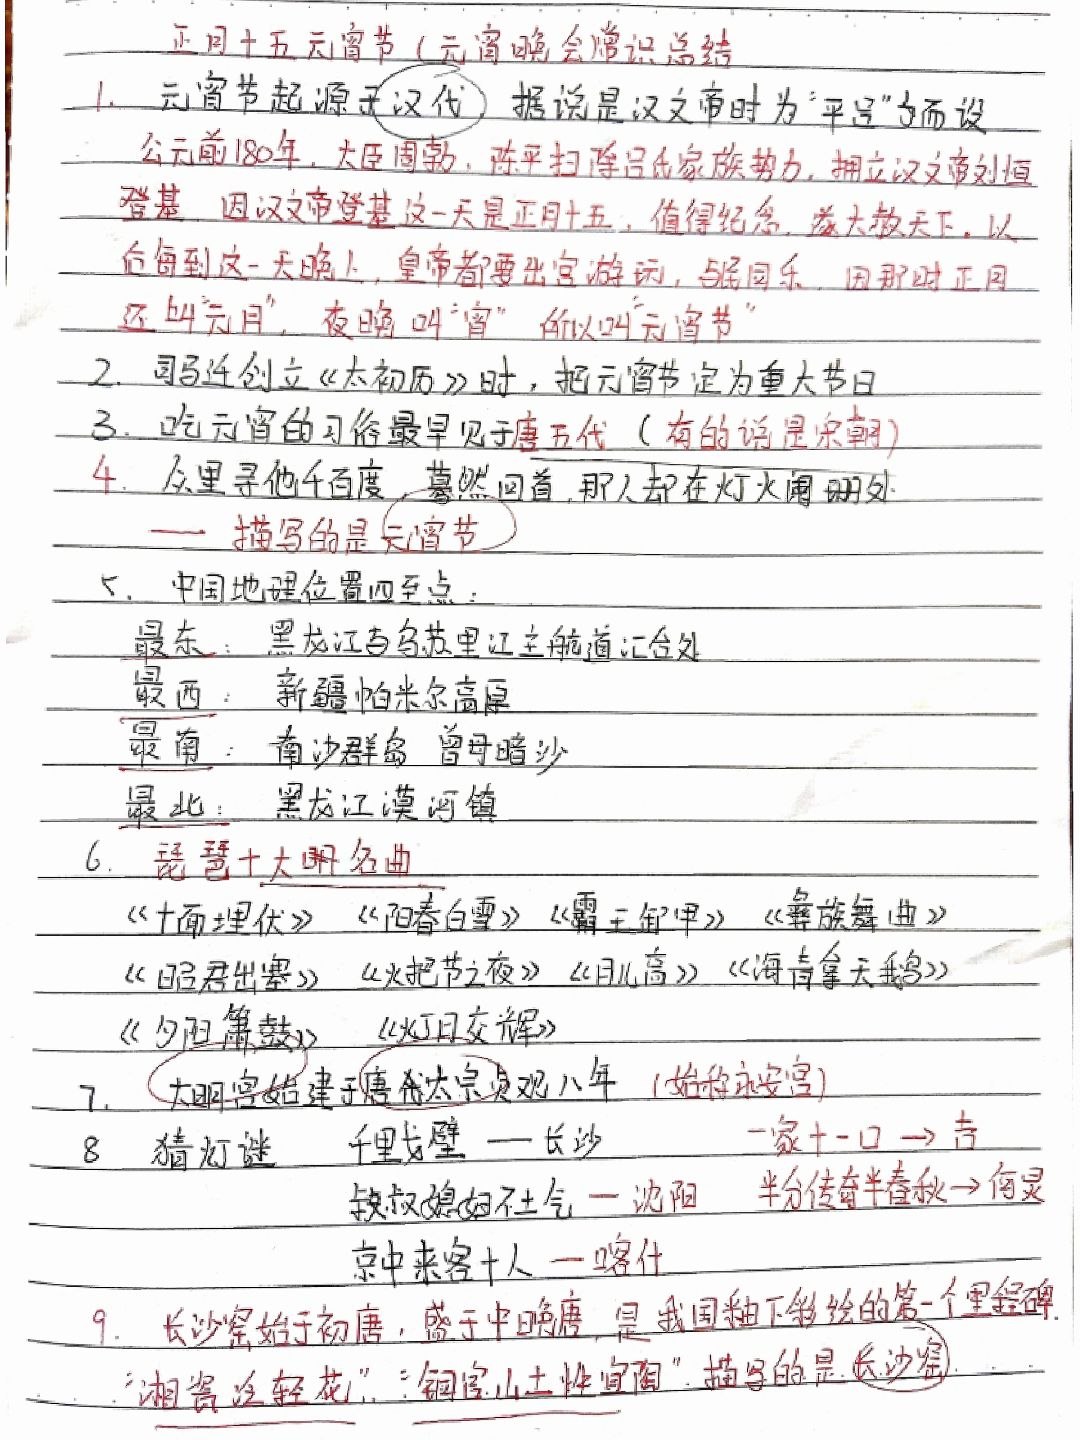 正月十五元宵节(元宵晚会常识总结
1. 元宵节起源于汉代 据说是汉文帝时为"平吕"而设
公元前180年,大臣周勃,陈平扫除吕氏家族势力,拥立汉文帝刘恒
登基,因汉文帝登基这一天是正月十五,值得纪念,遂大赦天下。以
后每到这一天晚上,皇帝都要出宫游玩,与民同乐,因那时正月
还叫"元月",夜晚叫"宵"所以叫"元宵节"
2. 司马迁创立《太初历》时,把元宵节定为重大节日
3. 吃元宵的习俗最早见于唐五代(有的说是宋朝)
4. 众里寻他千百度,蓦然回首,那人却在灯火阑珊处
— 描写的是元宵节
5. 中国地理位置四至点:
最东: 黑龙江与乌苏里江主航道汇合处
最西: 新疆帕米尔高原
最南: 南沙群岛 曾母暗沙
最北: 黑龙江漠河镇
6. 琵琶十大名曲
《十面埋伏》 《阳春白雪》 《霸王卸甲》 《彝族舞曲》
《昭君出塞》 《火把节之夜》 《月儿高》 《海青拿天鹅》
《夕阳箫鼓》 《灯月交辉》
7. 大明宫始建于唐代太宗贞观八年 (始称永安宫)
8 猜灯谜 千里戈壁 — 长沙 一家十一口 → 吉
叔叔媳妇不土气 — 沈阳 半分传奇半春秋 → 俦炅
京中来客十人 — 喀什
9. 长沙窑始于初唐,盛于中晚唐,是我国釉下彩绘的第一个里程碑.
"湘瓷泛轻花"、"铜官山土性宜陶"描写的是长沙窑.